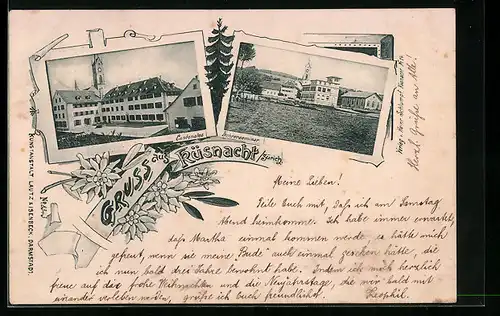 Cantonales
Lehrerseminar
Gruss aus Küsnacht/Zürich
KUNSTANSTALT LAUTZ & ISENBECK, DARMSTADT.
Herzl. Grüße an alle!
Meine Lieben!
Teile Euch mit, daß ich am Samstag
Abend heimkomme. Ich habe immer erwartet,
daß Martha einmal kommen werde, es hätte mich
gefreut, wenn sie meine "Bude" auch einmal gesehen hätte, die
ich nun bald drei Jahre bewohnt habe. Indem ich mich herzlich
freue auf die frohe Weihnachten und die Neujahrstage, die wir bald mit
einander verleben werden, grüße ich Euch freundlichst. Theophil.